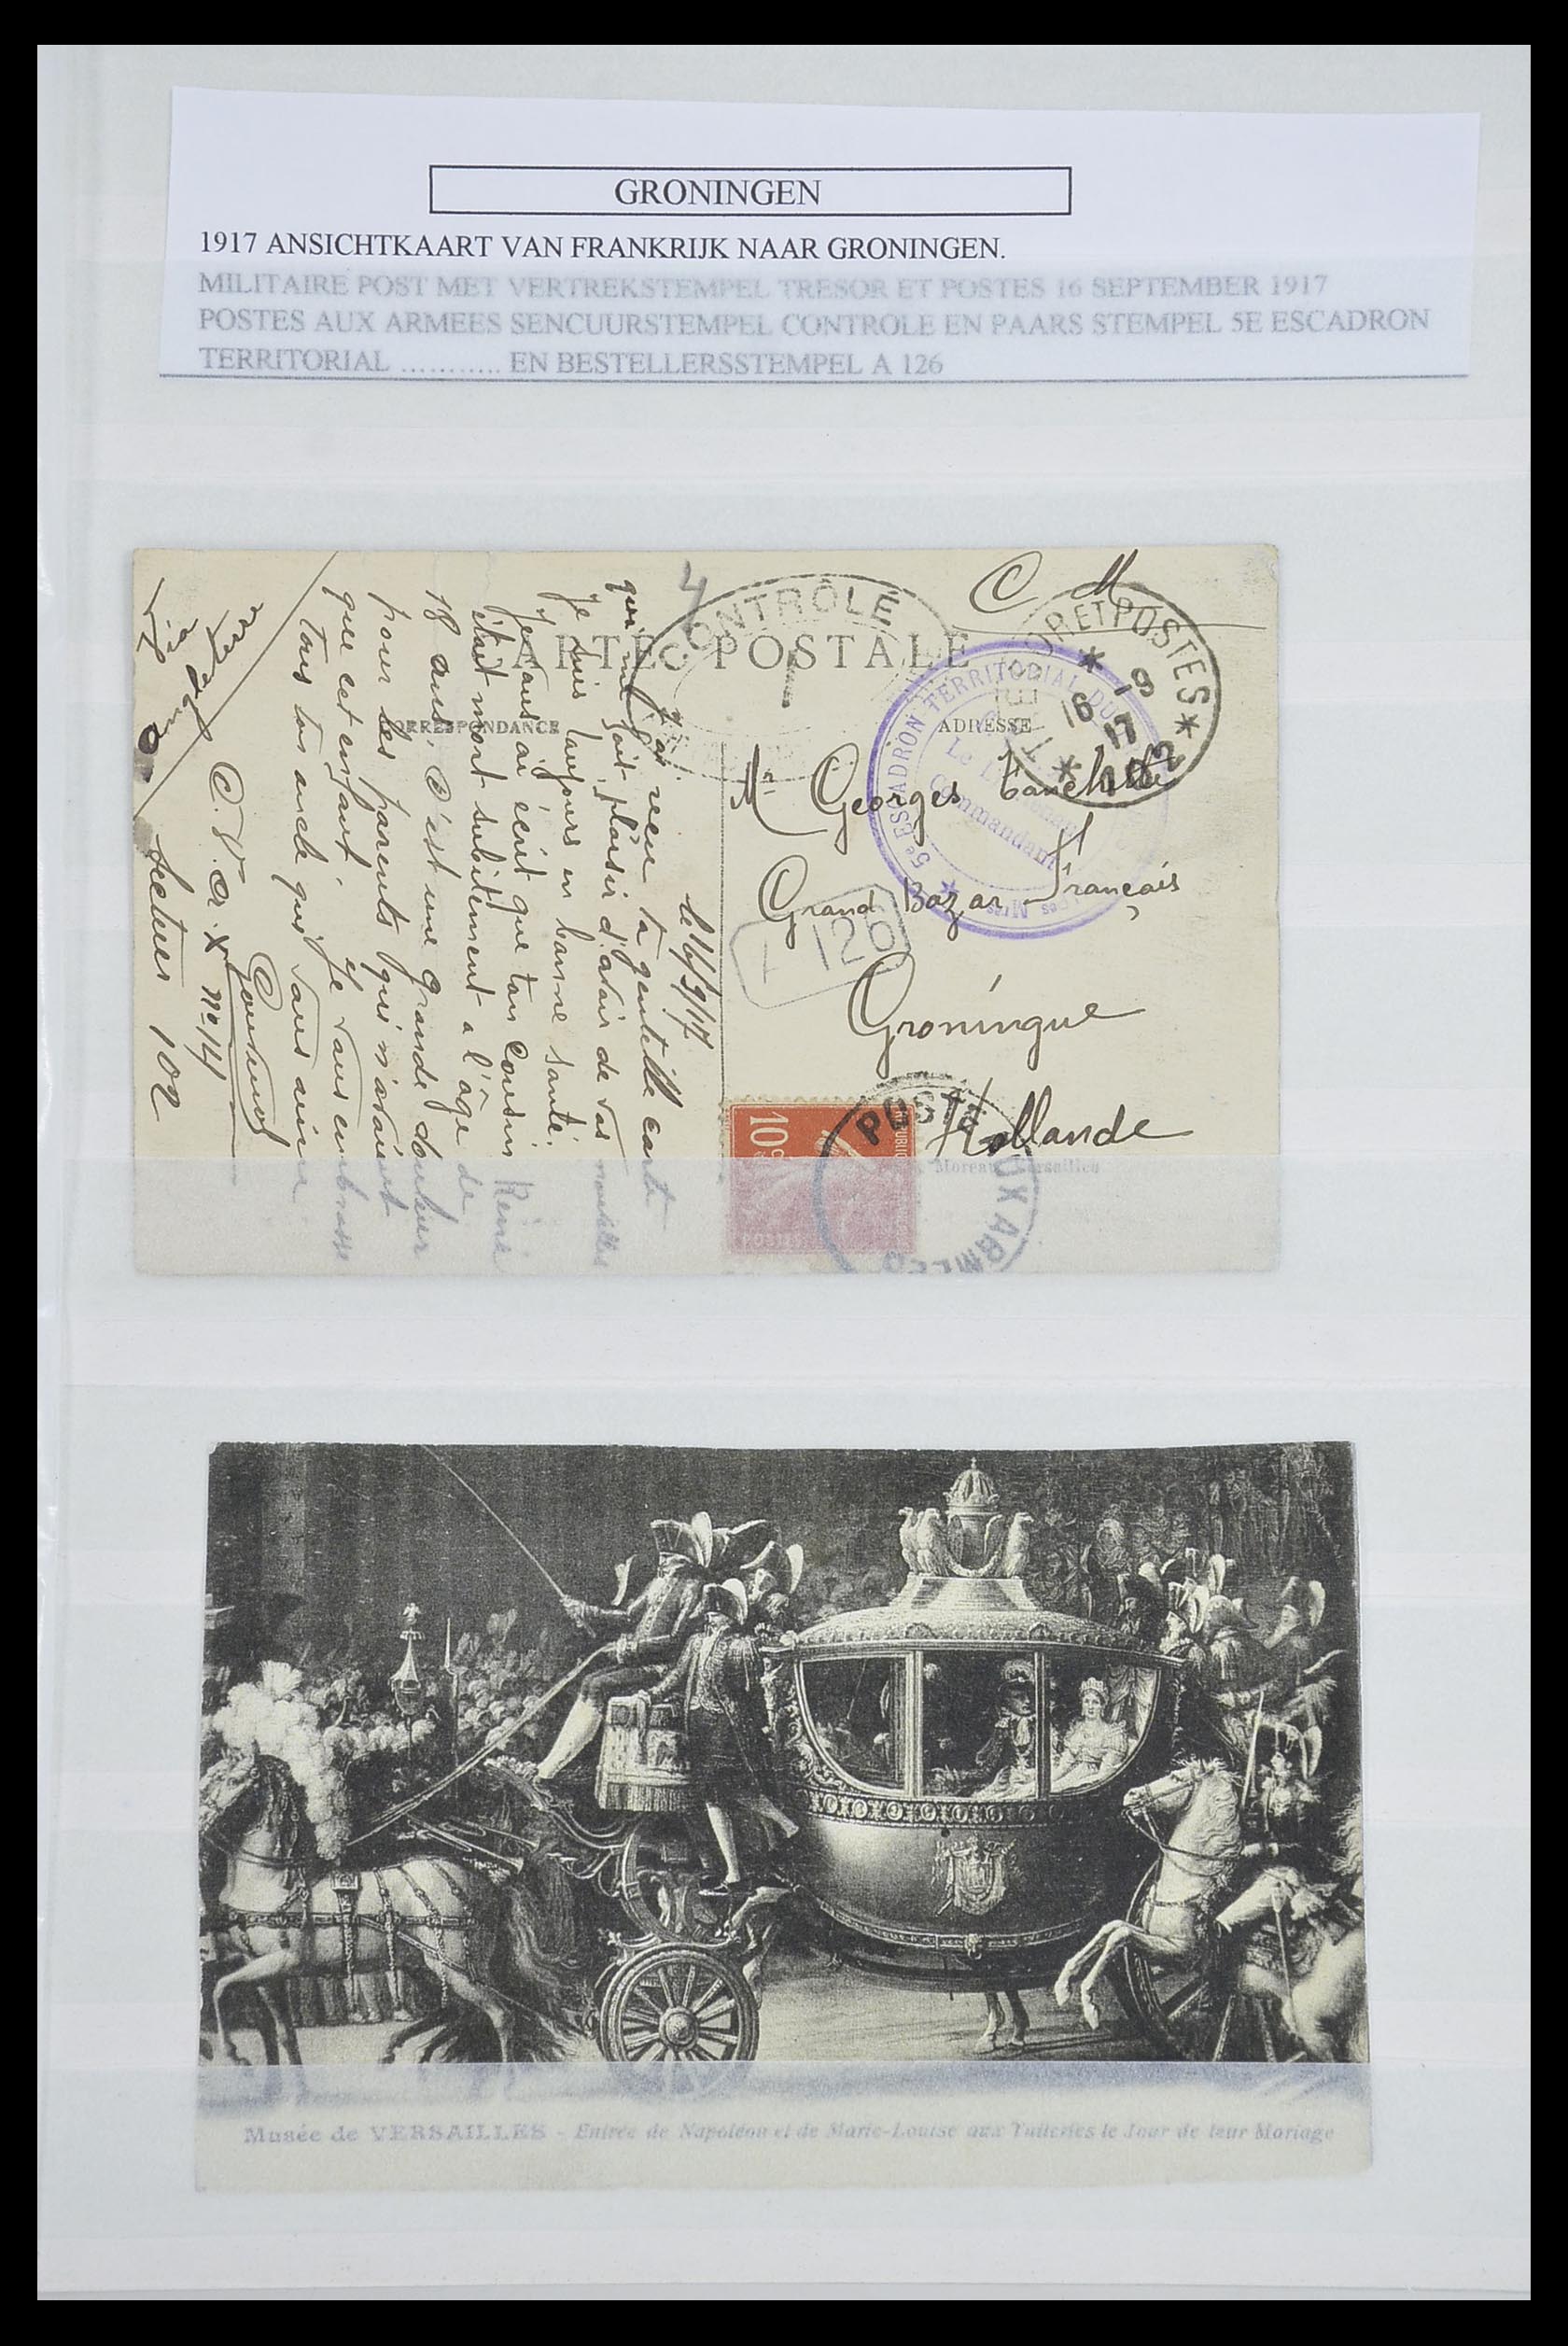 GRONINGEN
1917 ANSICHTKAART VAN FRANKRIJK NAAR GRONINGEN.
MILITAIRE POST MET VERTREKSTEMPEL TRESOR ET POSTES 16 SEPTEMBER 1917
POSTES AUX ARMEES SENCUURSTEMPEL CONTROLE EN PAARS STEMPEL 5E ESCADRON
TERRITORIAL ........... EN BESTELLERSSTEMPEL A 126
4
C M
CONTRÔLE
1
CARTE POSTALE
CORRESPONDANCE
ADRESSE
TRESOR ET POSTES
16 -9
17
* 102 *
5e ESCADRON TERRITORIAL DU
Le
Commandant
Mr Georges
Grand Bazar Français
Groningue
Hollande
126
10c
POSTES
POSTES AUX ARMEES
Moreau, Versailles
le 16/9/17
J'ai reçu ta gentille carte
qui me fait plaisir d'avoir de vos nouvelles
Je suis toujours en bonne santé.
Je vous ai écrit que ton cousin René
était mort subitement a l'âge de
18 ans. C'est une grande douleur
pour les parents qui n'avaient
que cet enfant. Je vous embrasse
tous ton oncle qui vous aime
C.V.A.X no 14
Secteur 102
via
Musée de VERSAILLES - Entrée de Napoléon et de Marie-Louise aux Tuileries le Jour de leur Mariage